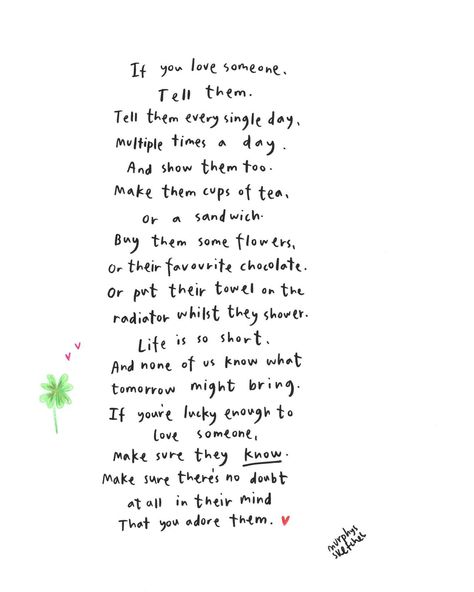 If you love someone,
Tell them.
Tell them every single day,
Multiple times a day.
And show them too.
Make them cups of tea,
Or a sandwich.
Buy them some flowers,
Or their favourite chocolate.
Or put their towel on the
radiator whilst they shower.
Life is so short,
And none of us know what
tomorrow might bring.
If you're lucky enough to
love someone,
Make sure they know.
Make sure there's no doubt
at all in their mind
That you adore them.
murphys
sketches